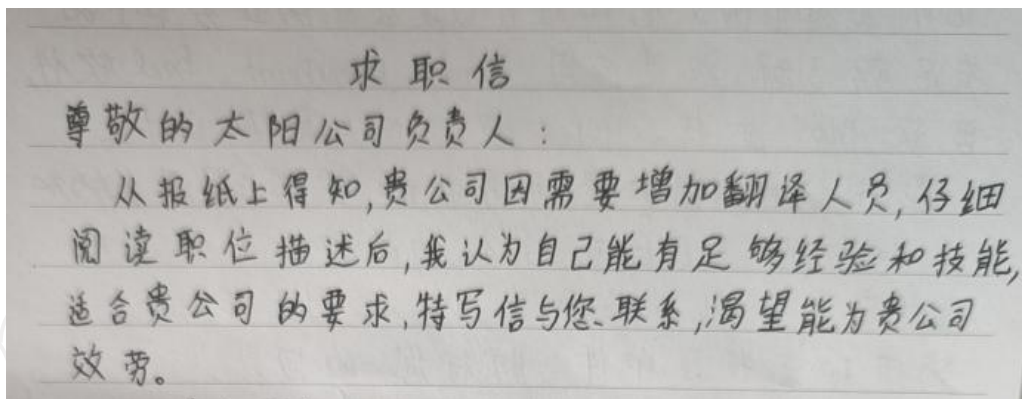 求职信
尊敬的太阳公司负责人：
从报纸上得知,贵公司因需要增加翻译人员,仔细
阅读职位描述后,我认为自己能有足够经验和技能,
适合贵公司的要求,特写信与您联系,渴望能为贵公司
效劳。